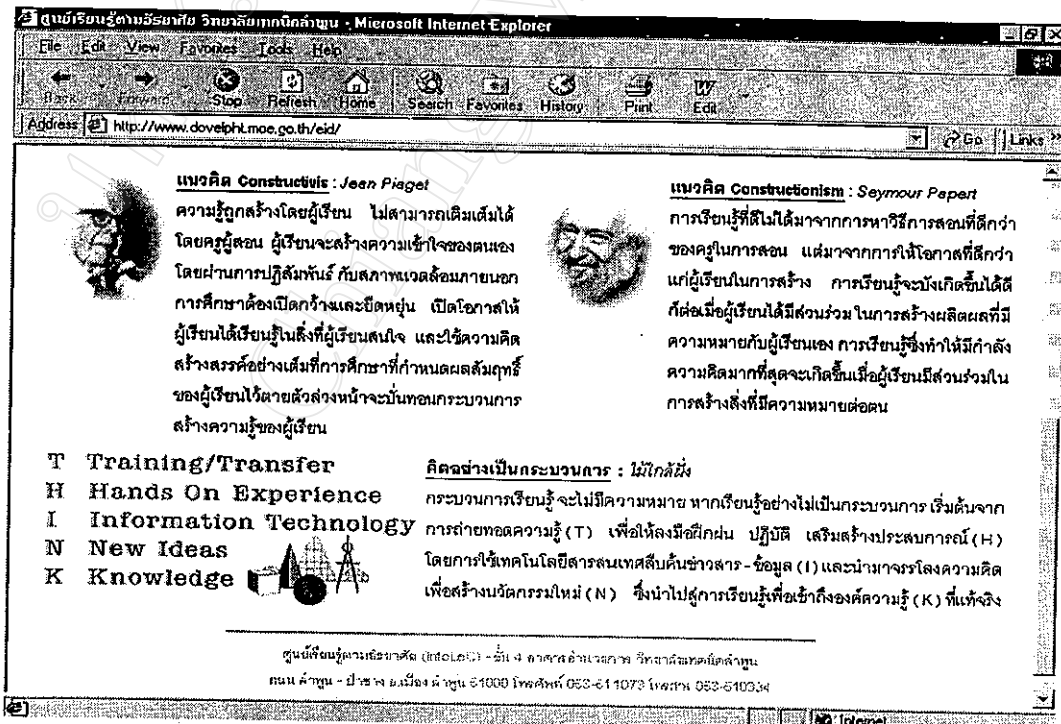 ศูนย์เรียนรู้ตามอัธยาศัย วิทยาลัยเทคนิคลำพูน - Microsoft Internet Explorer
File Edit View Favorites Tools Help
Back Forward Stop Refresh Home Search Favorites History Print Edit
Address http://www.dovelpht.moe.go.th/eid/ Go Links
แนวคิด Constructivis : Jean Piaget
ความรู้ถูกสร้างโดยผู้เรียน ไม่สามารถเติมเต็มได้
โดยครูผู้สอน ผู้เรียนจะสร้างความเข้าใจของตนเอง
โดยผ่านการปฏิสัมพันธ์ กับสภาพแวดล้อมภายนอก
การศึกษาต้องเปิดกว้างและยืดหยุ่น เปิดโอกาสให้
ผู้เรียนได้เรียนรู้ในสิ่งที่ผู้เรียนสนใจ และใช้ความคิด
สร้างสรรค์อย่างเต็มที่การศึกษาที่กำหนดผลสัมฤทธิ์
ของผู้เรียนไว้ตายตัวล่วงหน้าจะบั่นทอนกระบวนการ
สร้างความรู้ของผู้เรียน
แนวคิด Constructionism : Seymour Papert
การเรียนรู้ที่ดีไม่ได้มาจากการหาวิธีการสอนที่ดีกว่า
ของครูในการสอน แต่มาจากการให้โอกาสที่ดีกว่า
แก่ผู้เรียนในการสร้าง การเรียนรู้จะบังเกิดขึ้นได้ดี
ก็ต่อเมื่อผู้เรียนได้มีส่วนร่วม ในการสร้างผลิตผลที่มี
ความหมายกับผู้เรียนเอง การเรียนรู้ซึ่งทำให้มีกำลัง
ความคิดมากที่สุดจะเกิดขึ้นเมื่อผู้เรียนมีส่วนร่วมใน
การสร้างสิ่งที่มีความหมายต่อตน
T Training/Transfer
H Hands On Experience
I Information Technology
N New Ideas
K Knowledge
คิดอย่างเป็นกระบวนการ : ไม้ใกล้ฝั่ง
กระบวนการเรียนรู้ จะไม่มีความหมาย หากเรียนรู้อย่างไม่เป็นกระบวนการ เริ่มต้นจาก
การถ่ายทอดความรู้ (T) เพื่อให้ลงมือฝึกฝน ปฏิบัติ เสริมสร้างประสบการณ์ (H)
โดยการใช้เทคโนโลยีสารสนเทศสืบค้นข่าวสาร - ข้อมูล (I) และนำมาจรรโลงความคิด
เพื่อสร้างนวัตกรรมใหม่ (N) ซึ่งนำไปสู่การเรียนรู้เพื่อเข้าถึงองค์ความรู้ (K) ที่แท้จริง
ศูนย์เรียนรู้ตามอัธยาศัย (InfoLeC) - ชั้น 4 อาคารอำนวยการ วิทยาลัยเทคนิคลำพูน
ถนน ลำพูน - ป่าซาง อ.เมือง ลำพูน 51000 โทรศัพท์ 053-511073 โทรสาร 053-510334
Internet